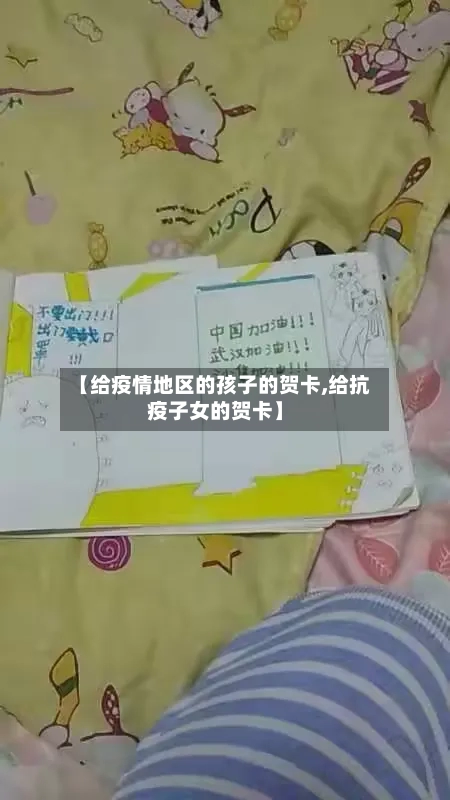 Poc
不要出门!!!
出门要戴口
!!!
中国加油!!!
武汉加油!!!
【给疫情地区的孩子的贺卡,给抗
疫子女的贺卡】